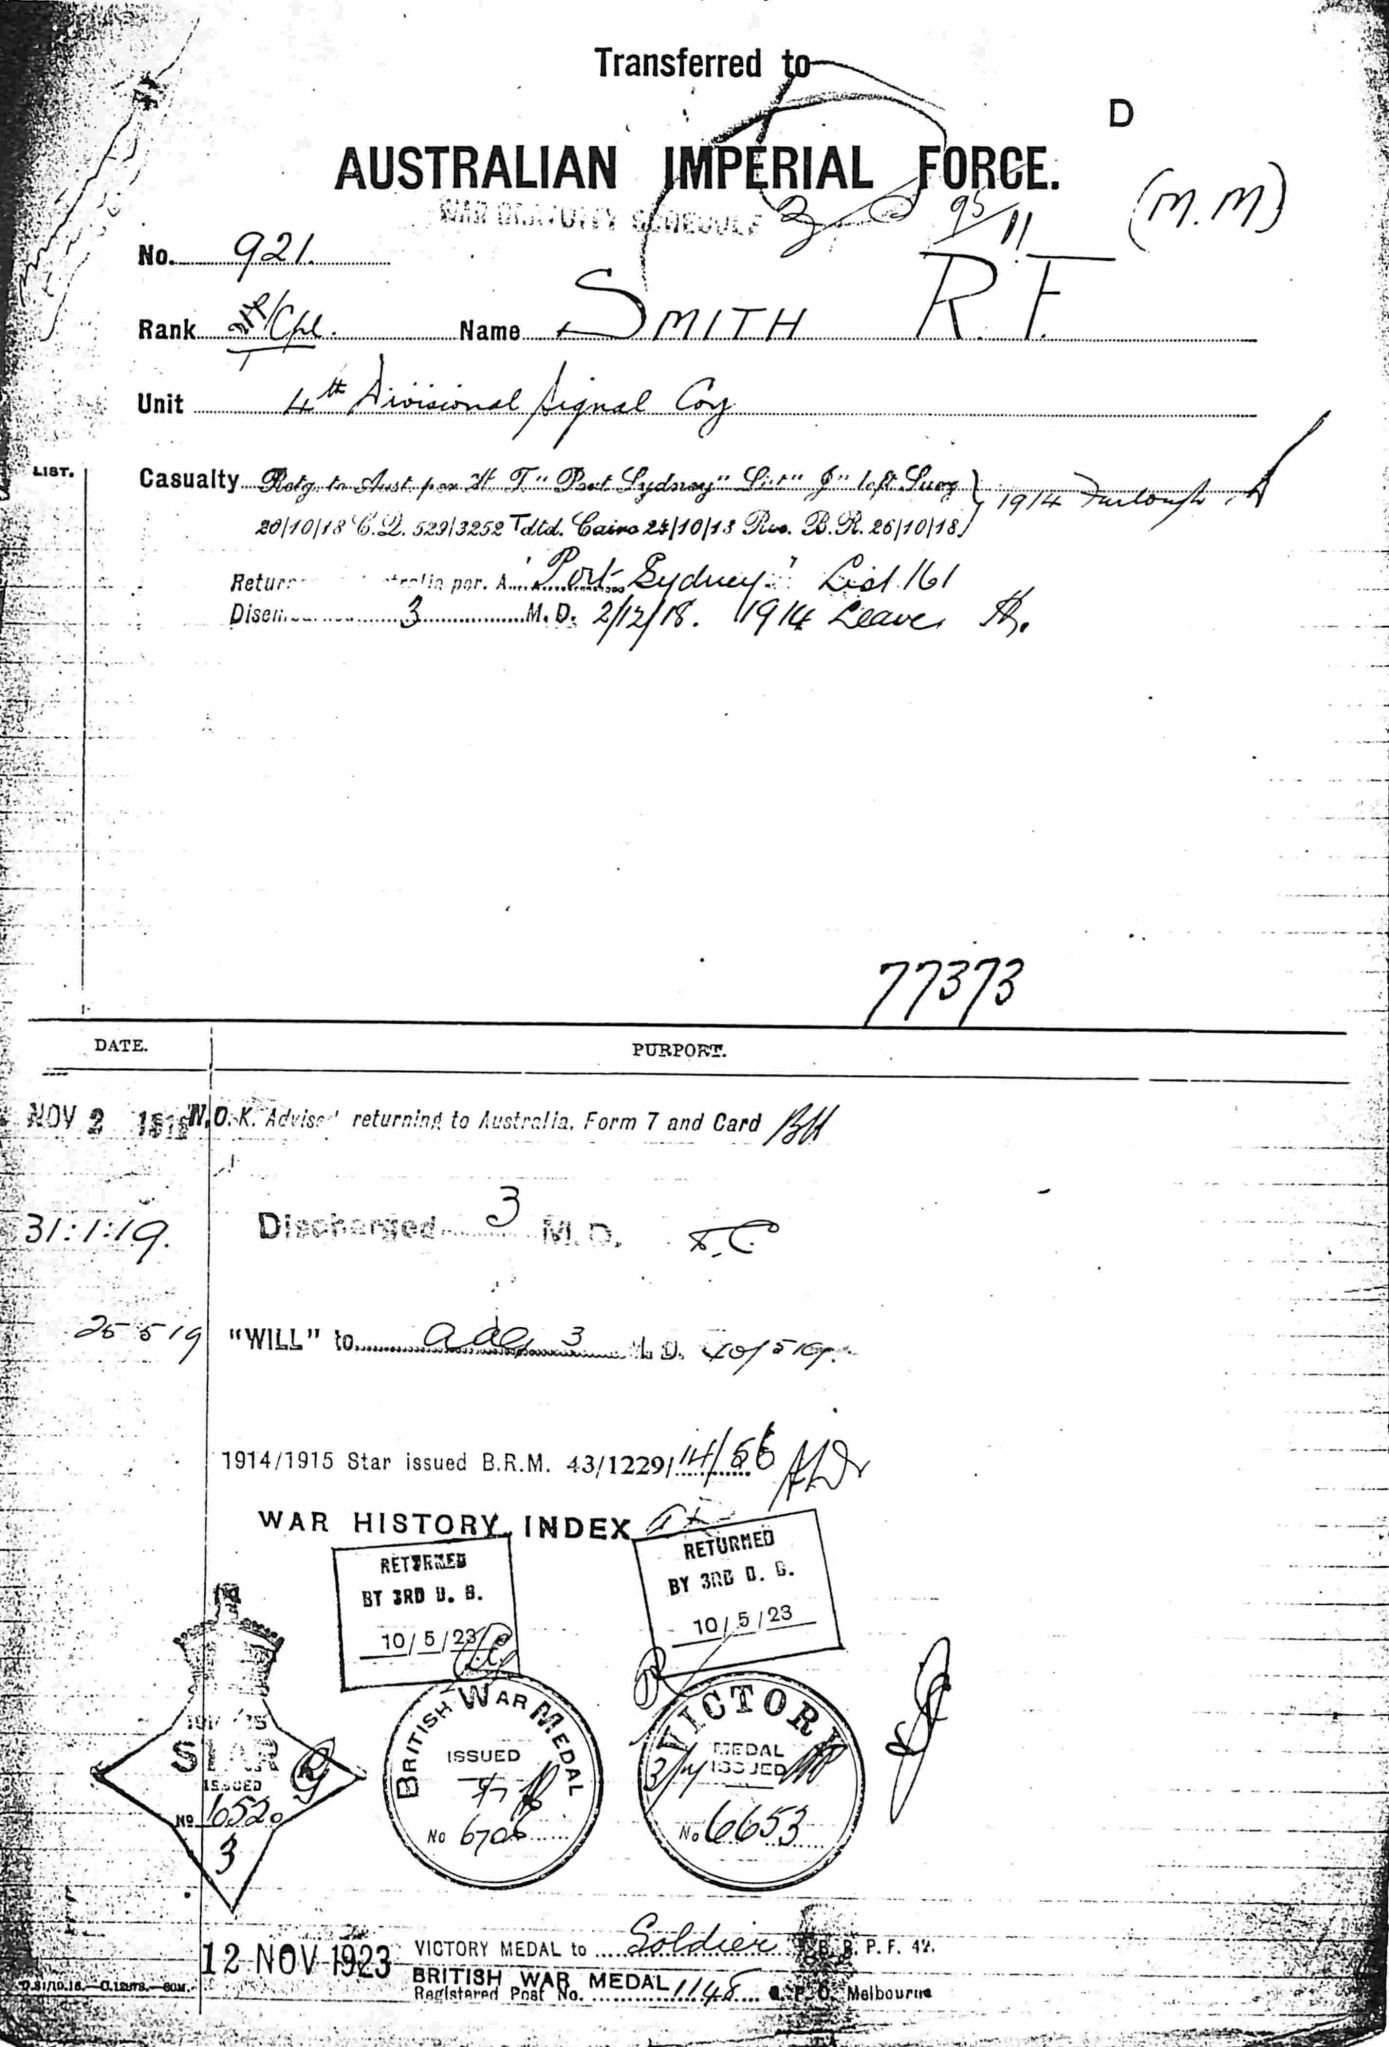 Transferred to
D
AUSTRALIAN IMPERIAL FORCE.
WAR GRATUITY SCHEDULE
95/11
(M.M)
No. 921.
Rank /Cpl. Name SMITH R.F.
Unit 4th Divisional Signal Coy
LIST.
Casualty Retg. to Aust. per H.T. "Port Sydney" List "J" left Suez
20/10/18 C.Q. 529/3252 Tdtd. Cairo 24/10/18 Rec. B.R. 26/10/18 } 1914 Furlough
per. "Port Sydney" List 161
3 M.D. 2/12/18. 1914 Leave
77373
DATE. PURPORT.
NOV 2 N.O.K. Advised returning to Australia. Form 7 and Card BH
31:1:19. Discharged 3 M.D.
25 5 19 "WILL" to 3 M.D.
1914/1915 Star issued B.R.M. 43/1229/14/56
WAR HISTORY INDEX
RETURNED
BY 3RD
10/5/23
RETURNED
BY 3RD
10/5/23
STAR
ISSUED
No 16520
3
BRITISH WAR MEDAL
ISSUED
No 6706
VICTORY
MEDAL
ISSUED
No 6653
12 NOV 1923 VICTORY MEDAL to Soldier P.F. 42.
BRITISH WAR MEDAL
Registered Post No. 1148 G.P.O. Melbourne